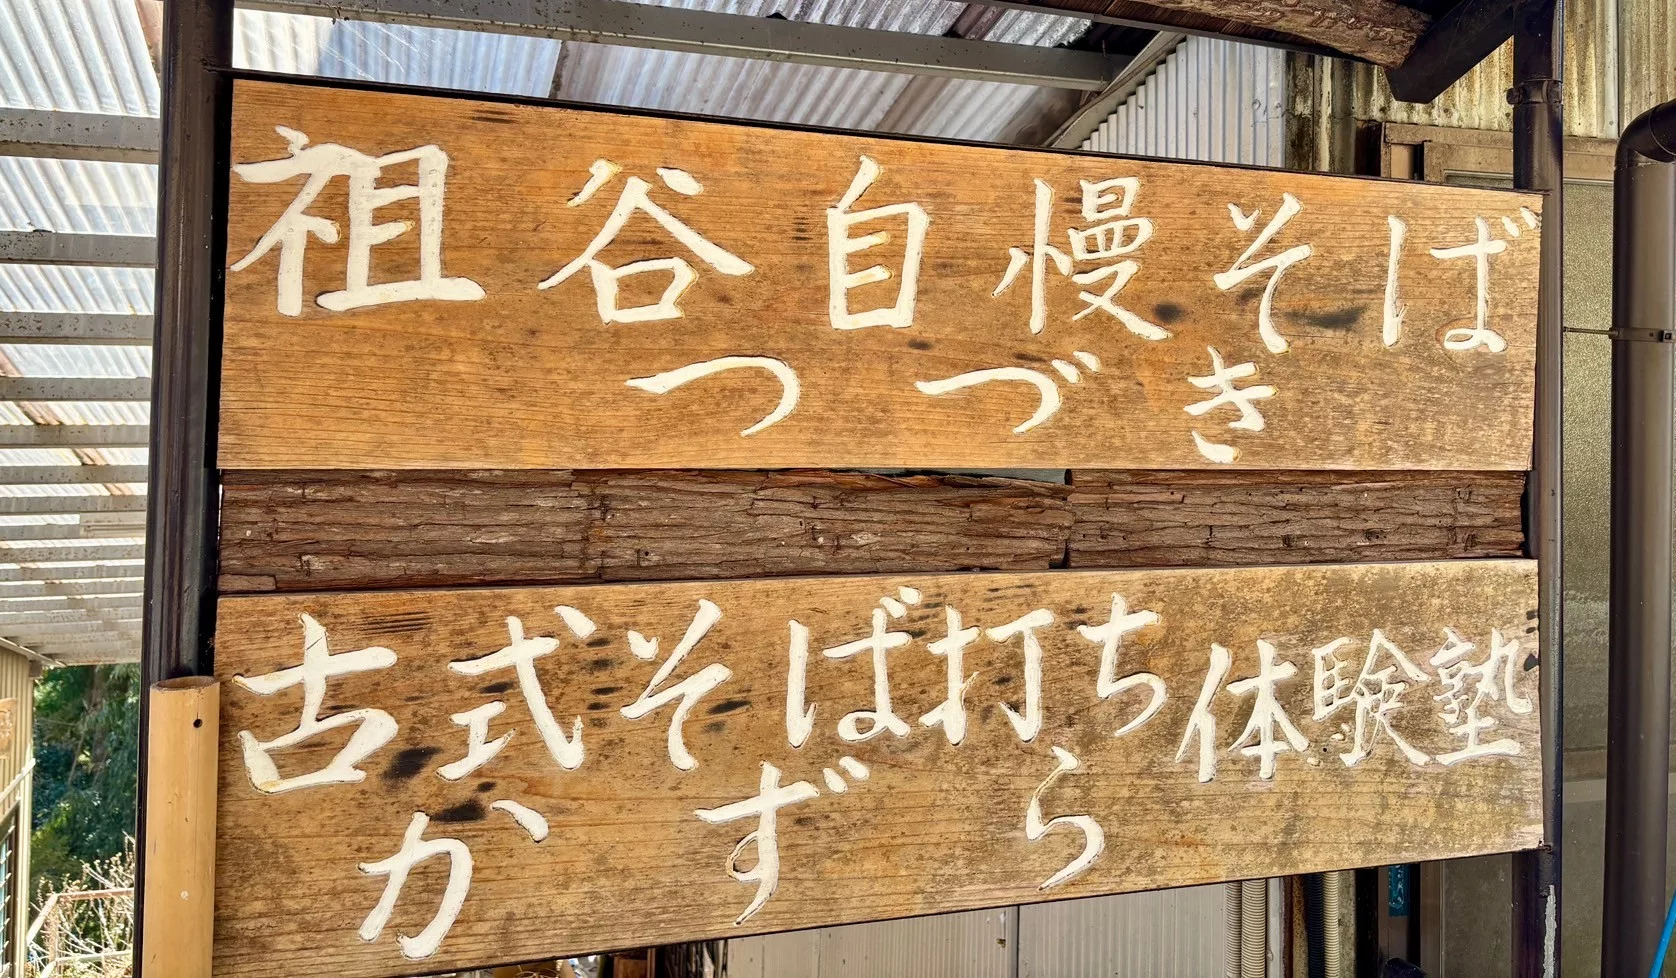 祖谷自慢そば
つづき
古式そば打ち体験塾
かずら